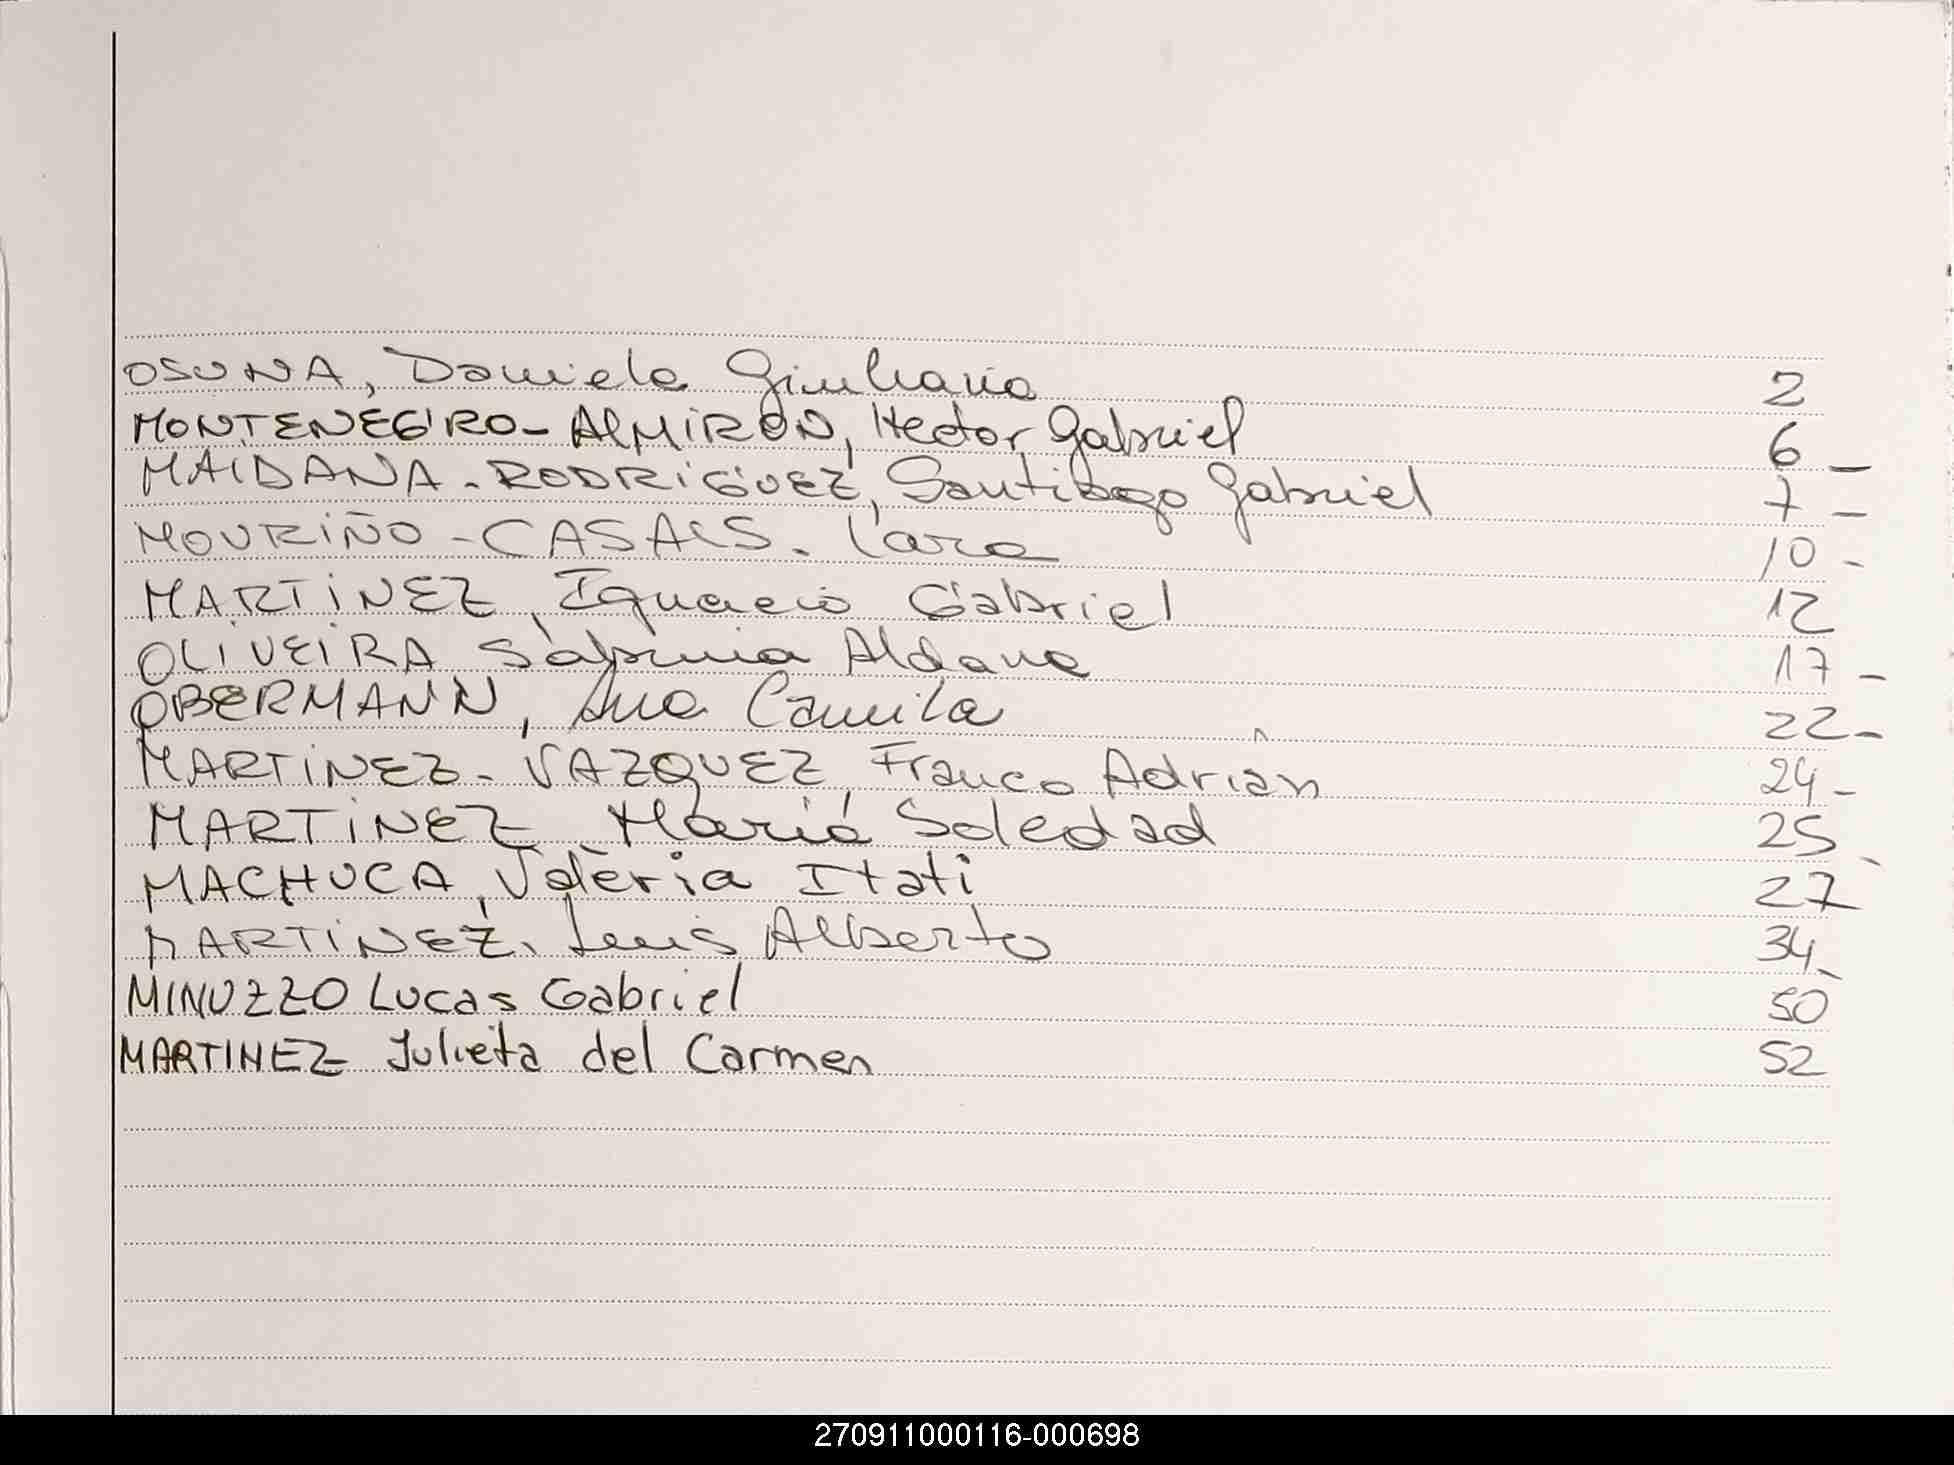 OSUNA, Daniela Giuliana 2
MONTENEGRO - AlMIRON, Hector Gabriel 6 -
MAIDANA - RODRIGUEZ, Santiago Gabriel 7 -
MOURIÑO - CASAlS. Lara 10 -
MARTINEZ, Ignacio Gabriel 12
OLIVEIRA Sabrina Aldana 17 -
OBERMANN, Ana Camila 22 -
MARTINEZ - VAZQUEZ, Franco Adrian 24 -
MARTINEZ, María Soledad 25 -
MACHUCA, Valeria Itati 27 -
MARTINEZ, Luis Alberto 34 -
MINUZZO Lucas Gabriel 50
MARTINEZ Julieta del Carmen 52
270911000116-000698